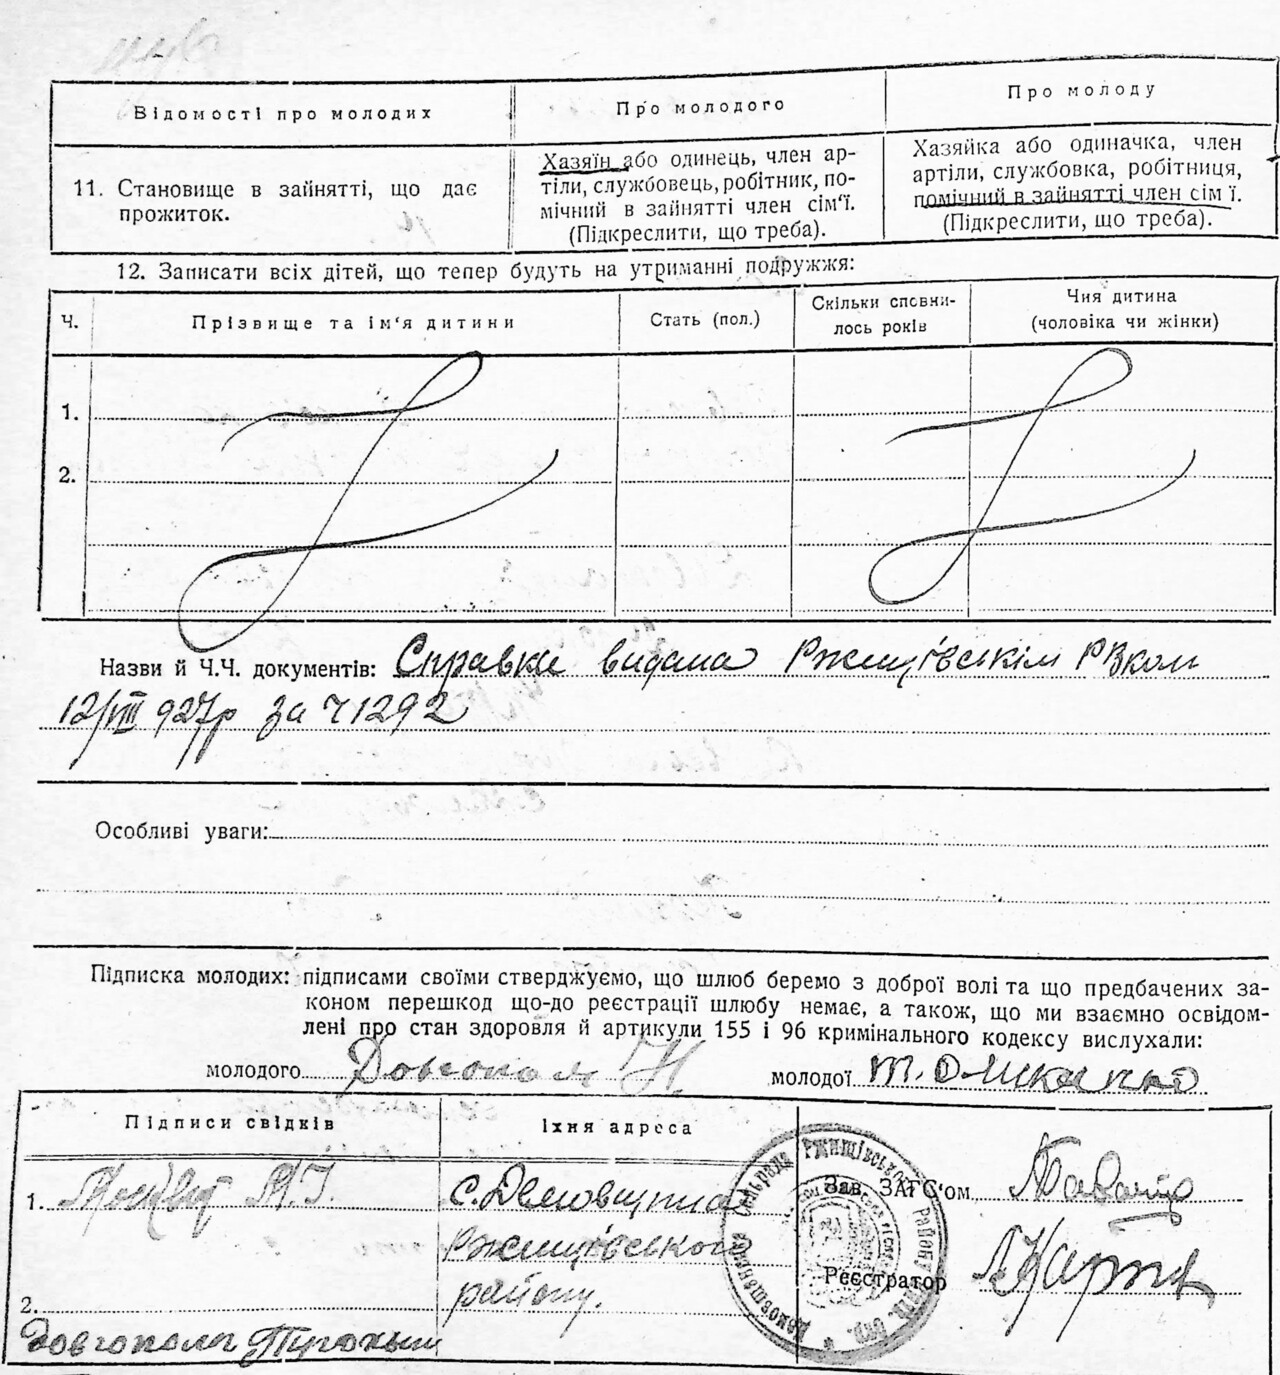 Відомості про молодих
Про молодого
Про молоду
11. Становище в зайнятті, що дає
прожиток.
Хазяїн або одинець, член ар-
тіли, службовець, робітник, по-
мічний в зайнятті член сім'ї.
(Підкреслити, що треба).
Хазяйка або одиначка, член
артіли, службовка, робітниця,
помічний в зайнятті член сім ї.
(Підкреслити, що треба).
12. Записати всіх дітей, що тепер будуть на утриманні подружжя:
Ч.
Прізвище та ім'я дитини
Стать (пол.)
Скільки сповни-
лось років
Чия дитина
(чоловіка чи жінки)
1.
2.
Назви й Ч.Ч. документів: Справки видана Ржищівським РВком
12/VIII 927р за Ч 1292
Особливі уваги:
Підписка молодих: підписами своїми стверджуємо, що шлюб беремо з доброї волі та що предбачених за-
коном перешкод що-до реєстрації шлюбу немає, а також, що ми взаємно освідом-
лені про стан здоровля й артикули 155 і 96 кримінального кодексу вислухали:
молодого Довгопол Н
молодої
Підписи свідків
Їхня адреса
1.
с. Демовщина
Ржищівського
району.
2.
Довгополог
Зав. ЗАГС'ом
Реєстратор
Сільрада Ржищівського району